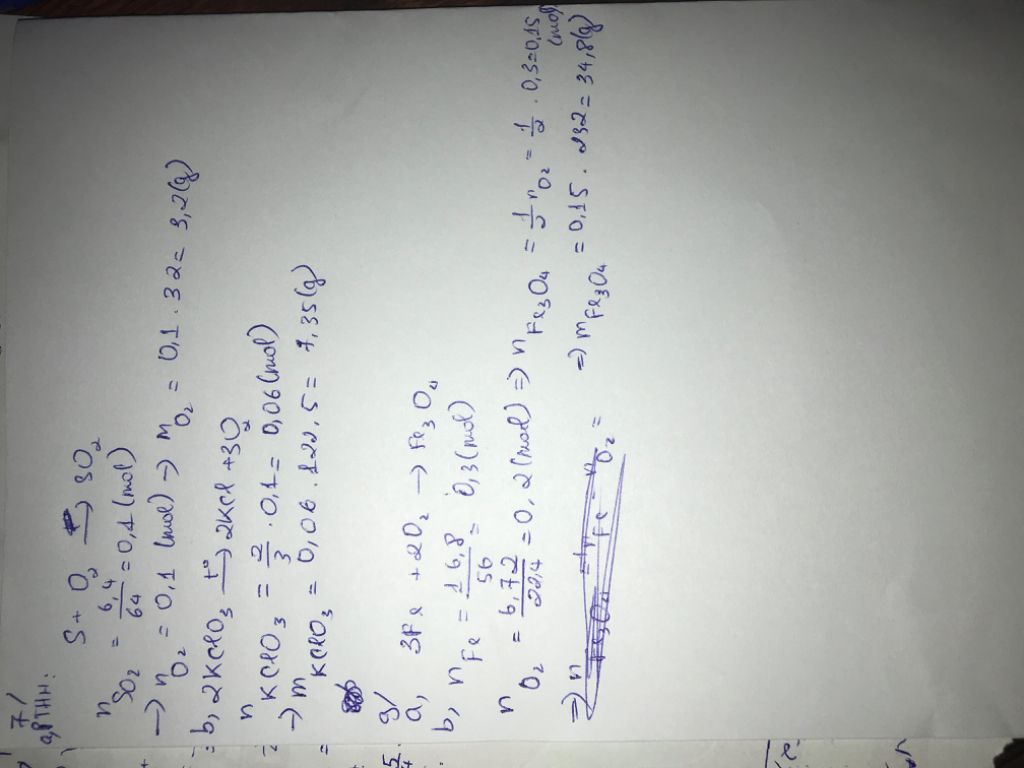 7/
a, PTHH: S + O2 → SO2
nSO2 = 6,4/64 = 0,1 (mol)
→ nO2 = 0,1 (mol) → mO2 = 0,1 . 32 = 3,2(g)
b, 2KClO3 –t°→ 2KCl + 3O2
nKClO3 = 2/3 . 0,1 = 0,06 (mol)
→ mKClO3 = 0,06 . 122,5 = 7,35(g)
9/
a, 3Fe + 2O2 → Fe3O4
b, nFe = 16,8/56 = 0,3 (mol)
nO2 = 6,72/22,4 = 0,2 (mol) => nFe3O4 = 1/2 nO2 = 1/2 . 0,3 = 0,15 (mol)
=> mFe3O4 = 0,15 . 232 = 34,8(g)